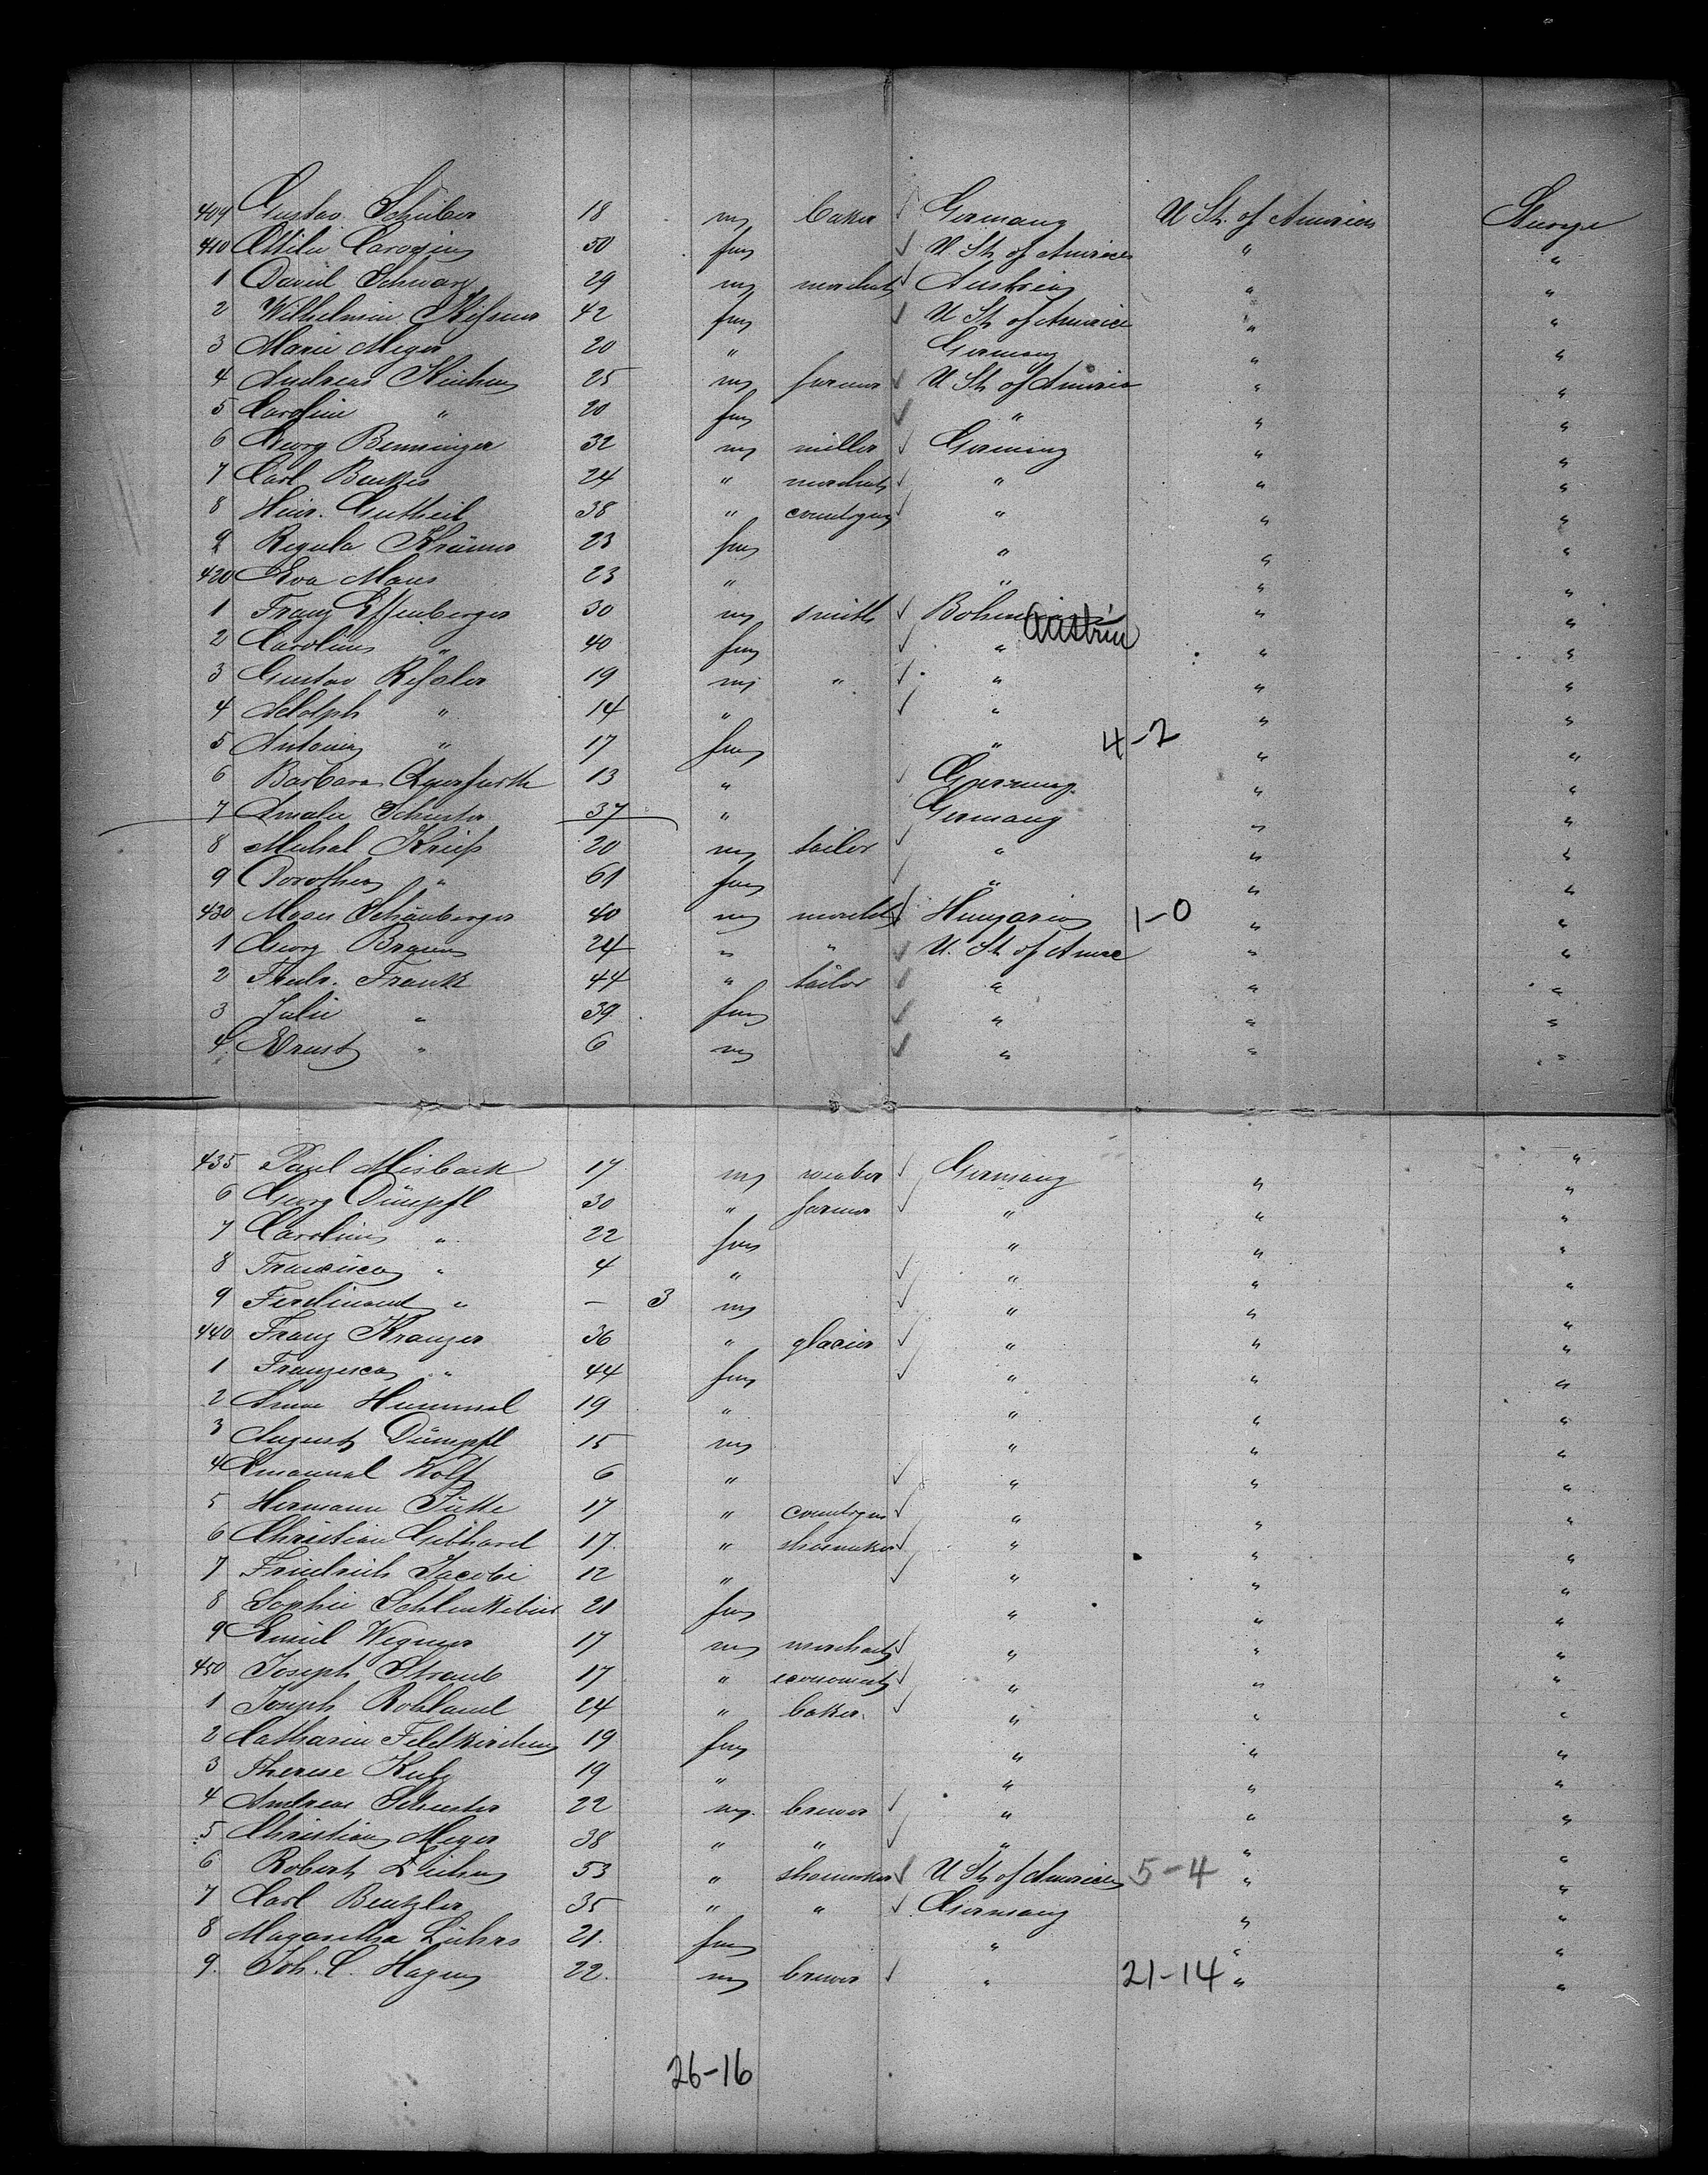 409 Gustav Schüber 18 m baker ✓ Germany U St. of America Steerage
410 Ottilie 50 fm ✓ U St. of America " "
1 David Schwarz 29 m merchant ✓ Austria " "
2 Wilhelmine 42 fm ✓ U St. of America " "
3 Marie Meyer 20 " Germany " "
4 Andreas 25 m farmer ✓ U St. of America " "
5 Caroline " 20 fm ✓ " " "
6 Georg Benninger 32 m miller ✓ Germany " "
7 Carl 24 " merchant ✓ " " "
8 Heinr. Gutheil 38 " ✓ " " "
9 Regula Krämer 23 fm " " "
420 Eva Maus 23 " " " "
1 Franz Effenberger 30 m smith ✓ Austria " "
2 Caroline " 40 fm ✓ " " "
3 Gustav Reßler 19 m " ✓ " " "
4 Adolph " 14 " ✓ " " "
5 Antonia " 17 fm " 4-2 " "
6 Barbara Querfurth 13 " ✓ Germany " "
7 Amalie Schuster 37 " Germany " "
8 Michal Krieß 20 m tailor ✓ " " "
9 Dorothea " 61 fm ✓ " " "
430 Moses Schönberger 40 m merchant ✓ Hungaria 1-0 " "
1 Georg Braun 24 " " ✓ U. St. of Amre " "
2 Friedr. Frank 44 " tailor ✓ " " "
3 Julie " 39 fm ✓ " " "
4 Ernst " 6 m ✓ " " "
435 Paul Misback 17 m weaber ✓ Germany " "
6 Georg Dümpfl 30 " farmer ✓ " " "
7 Caroline " 22 fm " " "
8 Francisca " 4 " ✓ " " "
9 Ferdinand " — 3 m ✓ " " "
440 Franz Kranzer 36 " glazier ✓ " " "
1 Franzisca " 44 fm ✓ " " "
2 Anna Hummel 19 " " " "
3 August Dümpfl 15 m " " "
4 Emanuel Wolf 6 " ✓ " " "
5 Hermann 17 " ✓ " " "
6 Christian Gebhard 17 " shoemaker ✓ " " "
7 Friedrich Jacobi 12 " ✓ " " "
8 Sophie 21 fm " " "
9 Emil Wegner 17 m merchant ✓ " " "
450 Joseph Straub 17 " economist ✓ " " "
1 Joseph Rohland 24 " baker ✓ " " "
2 Catharine Feldkirchen 19 fm " " "
3 Therese 19 " " " "
4 Andreas Schuster 22 m brewer ✓ " " "
5 Christian Meyer 38 " " ✓ " " "
6 Robert 53 " shoemaker ✓ U St. of America 5-4 " "
7 Carl Bentzler 35 " " ✓ Germany " "
8 Magaretha Lührs 21 fm " " "
9 Joh. C. Hagen 22 m brewer ✓ " 21-14 " "
26-16